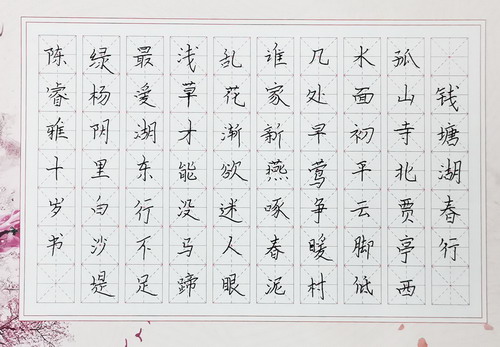 钱塘湖春行
孤山寺北贾亭西
水面初平云脚低
几处早莺争暖村
谁家新燕啄春泥
乱花渐欲迷人眼
浅草才能没马蹄
最爱湖东行不足
绿杨阴里白沙堤
陈睿雅十岁书